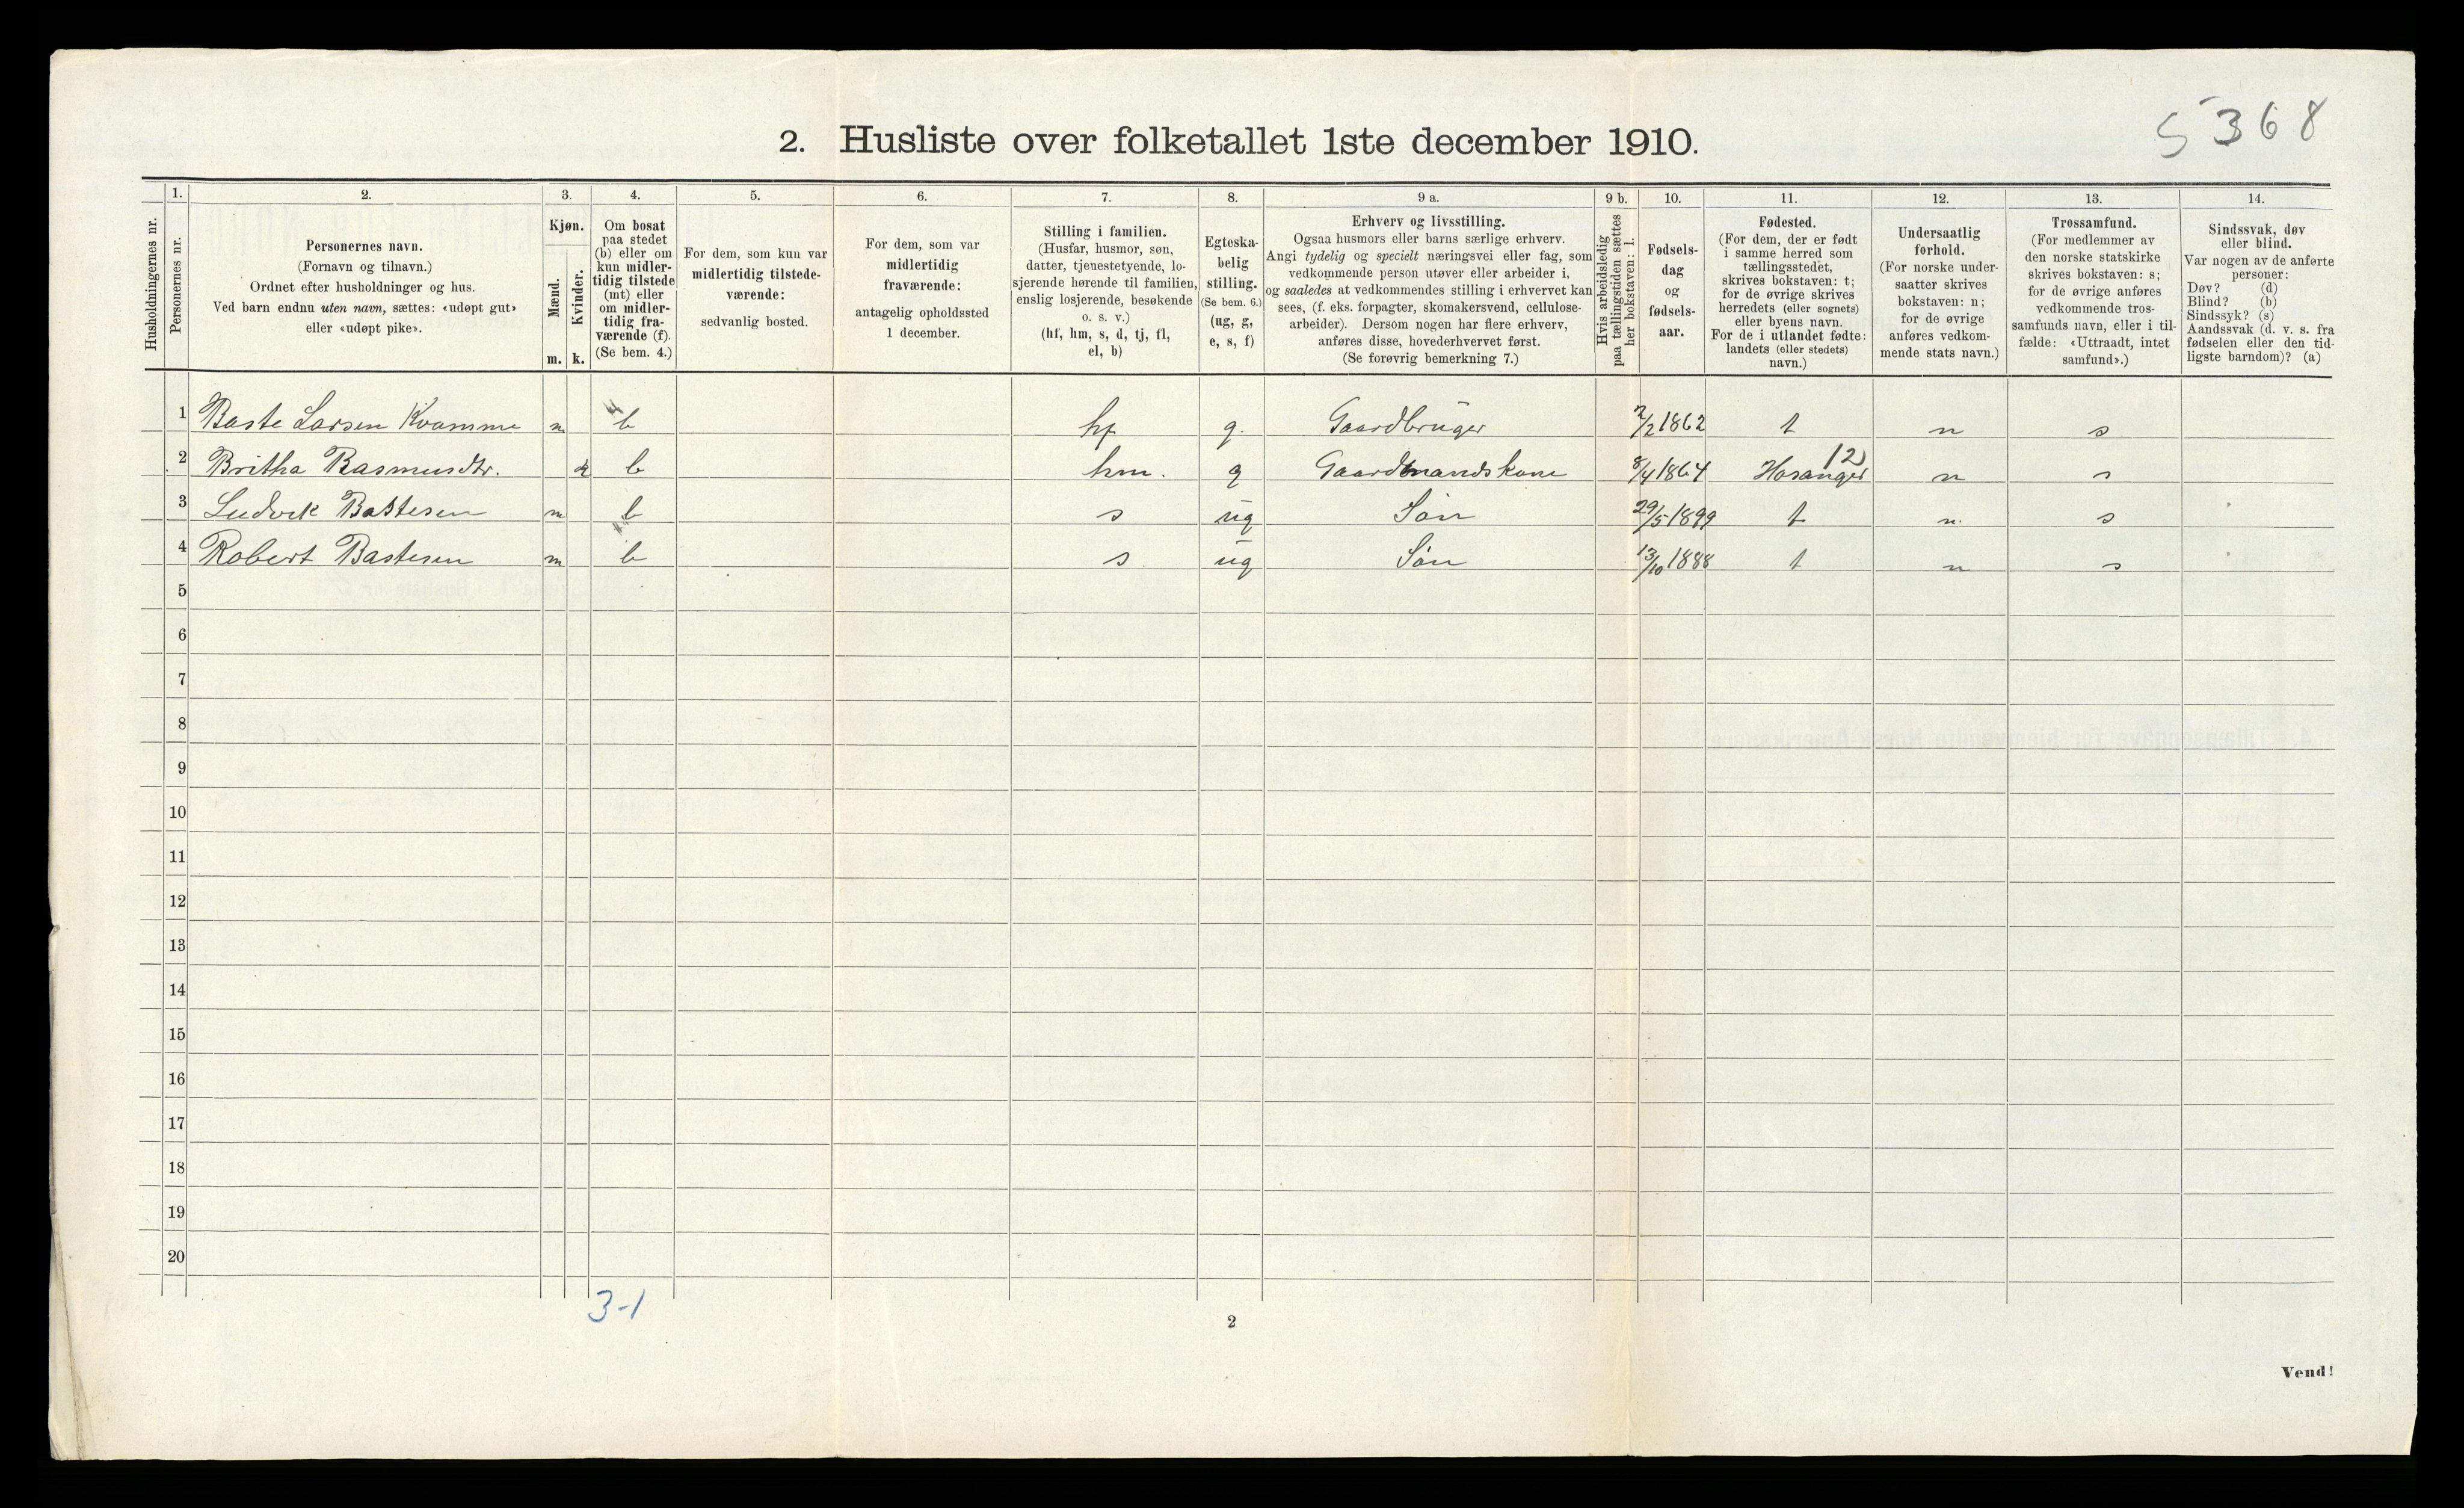 5368
2. Husliste over folketallet 1ste december 1910.
Husholdningernes nr.
1.
Personernes nr.
2.
Personernes navn.
(Fornavn og tilnavn.)
Ordnet efter husholdninger og hus.
Ved barn endnu uten navn, sættes: «udøpt gut»
eller «udøpt pike».
3.
Kjøn.
Mænd.
Kvinder.
m. k.
4.
Om bosat
paa stedet
(b) eller om
kun midler-
tidig tilstede
(mt) eller
om midler-
tidig fra-
værende (f).
(Se bem. 4.)
5.
For dem, som kun var
midlertidig tilstede-
værende:
sedvanlig bosted.
6.
For dem, som var
midlertidig
fraværende:
antagelig opholdssted
1 december.
7.
Stilling i familien.
(Husfar, husmor, søn,
datter, tjenestetyende, lo-
sjerende hørende til familien,
enslig losjerende, besøkende
o. s. v.)
(hf, hm, s, d, tj, fl,
el, b)
8.
Egteska-
belig
stilling.
(Se bem. 6.)
(ug, g,
e, s, f)
9 a.
Erhverv og livsstilling.
Ogsaa husmors eller barns særlige erhverv.
Angi tydelig og specielt næringsvei eller fag, som
vedkommende person utøver eller arbeider i,
og saaledes at vedkommendes stilling i erhvervet kan
sees, (f. eks. forpagter, skomakersvend, cellulose-
arbeider). Dersom nogen har flere erhverv,
anføres disse, hovederhvervet først.
(Se forøvrig bemerkning 7.)
9 b.
Hvis arbeidsledig
paa tællingstiden sættes
her bokstaven: l.
10.
Fødsels-
dag
og
fødsels-
aar.
11.
Fødested.
(For dem, der er født
i samme herred som
tællingsstedet,
skrives bokstaven: t;
for de øvrige skrives
herredets (eller sognets)
eller byens navn.
For de i utlandet fødte:
landets (eller stedets)
navn.)
12.
Undersaatlig
forhold.
(For norske under-
saatter skrives
bokstaven: n;
for de øvrige
anføres vedkom-
mende stats navn.)
13.
Trossamfund.
(For medlemmer av
den norske statskirke
skrives bokstaven: s;
for de øvrige anføres
vedkommende tros-
samfunds navn, eller i til-
fælde: «Uttraadt, intet
samfund».)
14.
Sindssvak, døv
eller blind.
Var nogen av de anførte
personer:
Døv? (d)
Blind? (b)
Sindssyk? (s)
Aandssvak (d. v. s. fra
fødselen eller den tid-
ligste barndom)? (a)
1 Baste Larsen Kvamme m b hf g. Gaardbruger 2/2 1862 t n s
2 Britha Rasmusdtr. k b hm. g Gaardmandskone 8/4 1864 Hosanger 12 n s
3 Ludvik Bastesen m b s ug Søn 29/5 1899 t n. s
4 Robert Bastesen m b s ug Søn 13/10 1888 t n s
5
6
7
8
9
10
11
12
13
14
15
16
17
18
19
20
3-1
2
Vend!